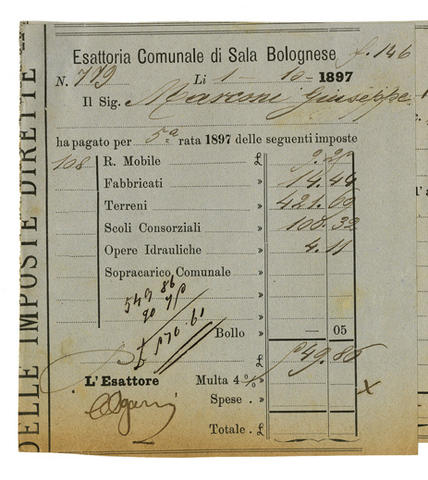 Esattoria Comunale di Sala Bolognese f. 146
N. 779 Li 1 - 10 - 1897
Il Sig. Marconi Giuseppe
ha pagato per 5ª rata 1897 delle seguenti imposte
108 R. Mobile £
Fabbricati » 14.44
Terreni » 421.00
Scoli Consorziali » 108.32
Opere Idrauliche » 4.11
Sopracarico Comunale »
549 86
Bollo » — 05
£ 549.86
L'Esattore Multa 4 % » x
Spese . »
Totale . £
DELLE IMPOSTE DIRETTE